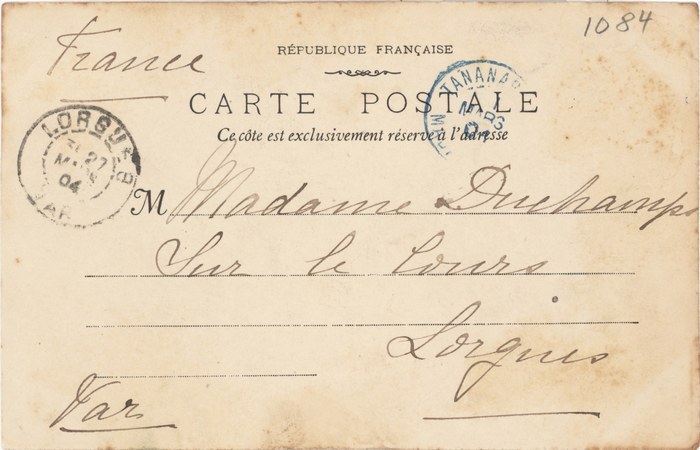 1084
France
RÉPUBLIQUE FRANÇAISE
CARTE POSTALE
Ce côté est exclusivement réservé à l'adresse
TANANA
MARS
LORGUES
27
MARS
04
VAR
M Madame Duchamps
Sur le Cours
Lorgues
Var